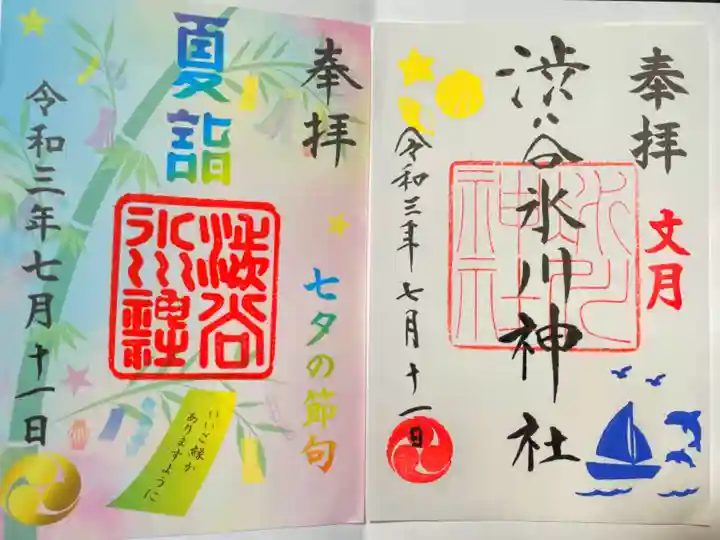 奉拝
夏詣
渋谷
氷川神社
七夕の節句
いいご縁が
ありますように
令和三年七月十一日
奉拝
文月
渋谷氷川神社
氷川
神社
令和三年七月十一日